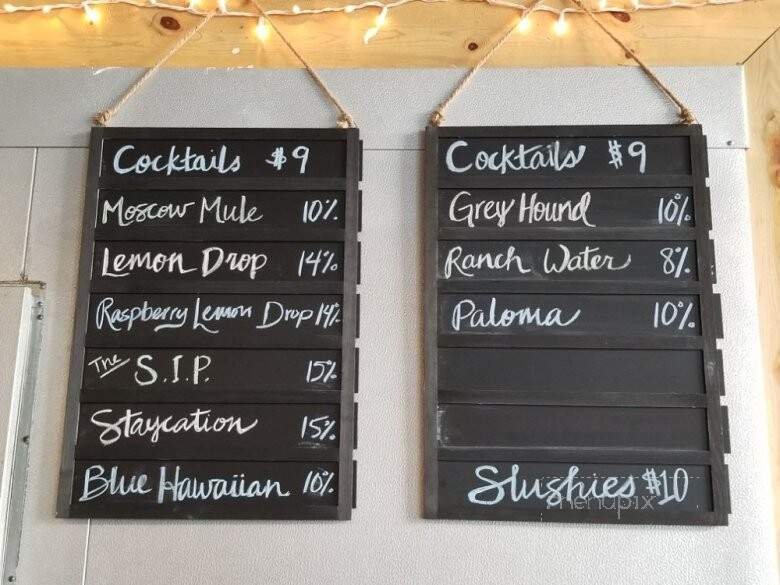 Cocktails $9
Moscow Mule 10%
Lemon Drop 14%
Raspberry Lemon Drop 14%
The S.I.P. 15%
Staycation 15%
Blue Hawaiian 10%
Cocktails $9
Grey Hound 10%
Ranch Water 8%
Paloma 10%
Slushies $10
menupix